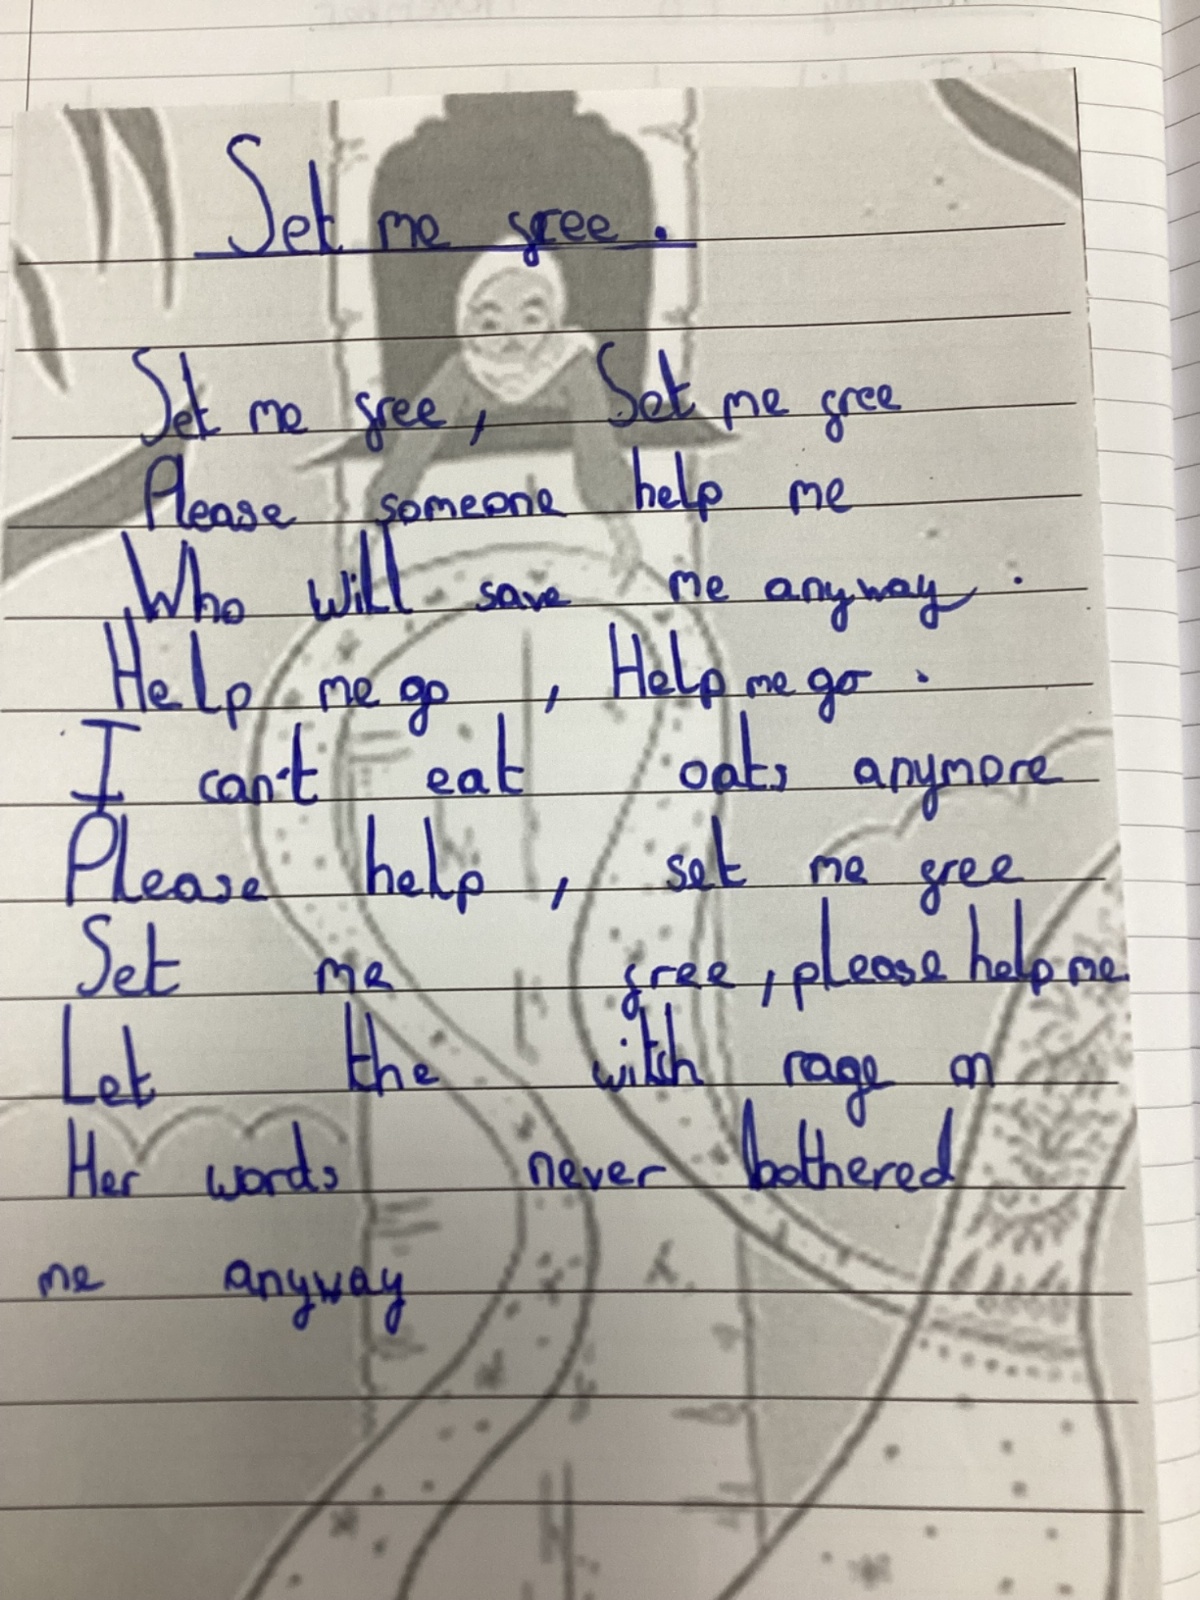 Set me free.
Set me free, Set me free
Please someone help me
Who will save me anyway.
Help me go, Help me go.
I can't eat oats anymore
Please help, set me free
Set me free, please help me
Let the witch rage on
Her words never bothered
me anyway